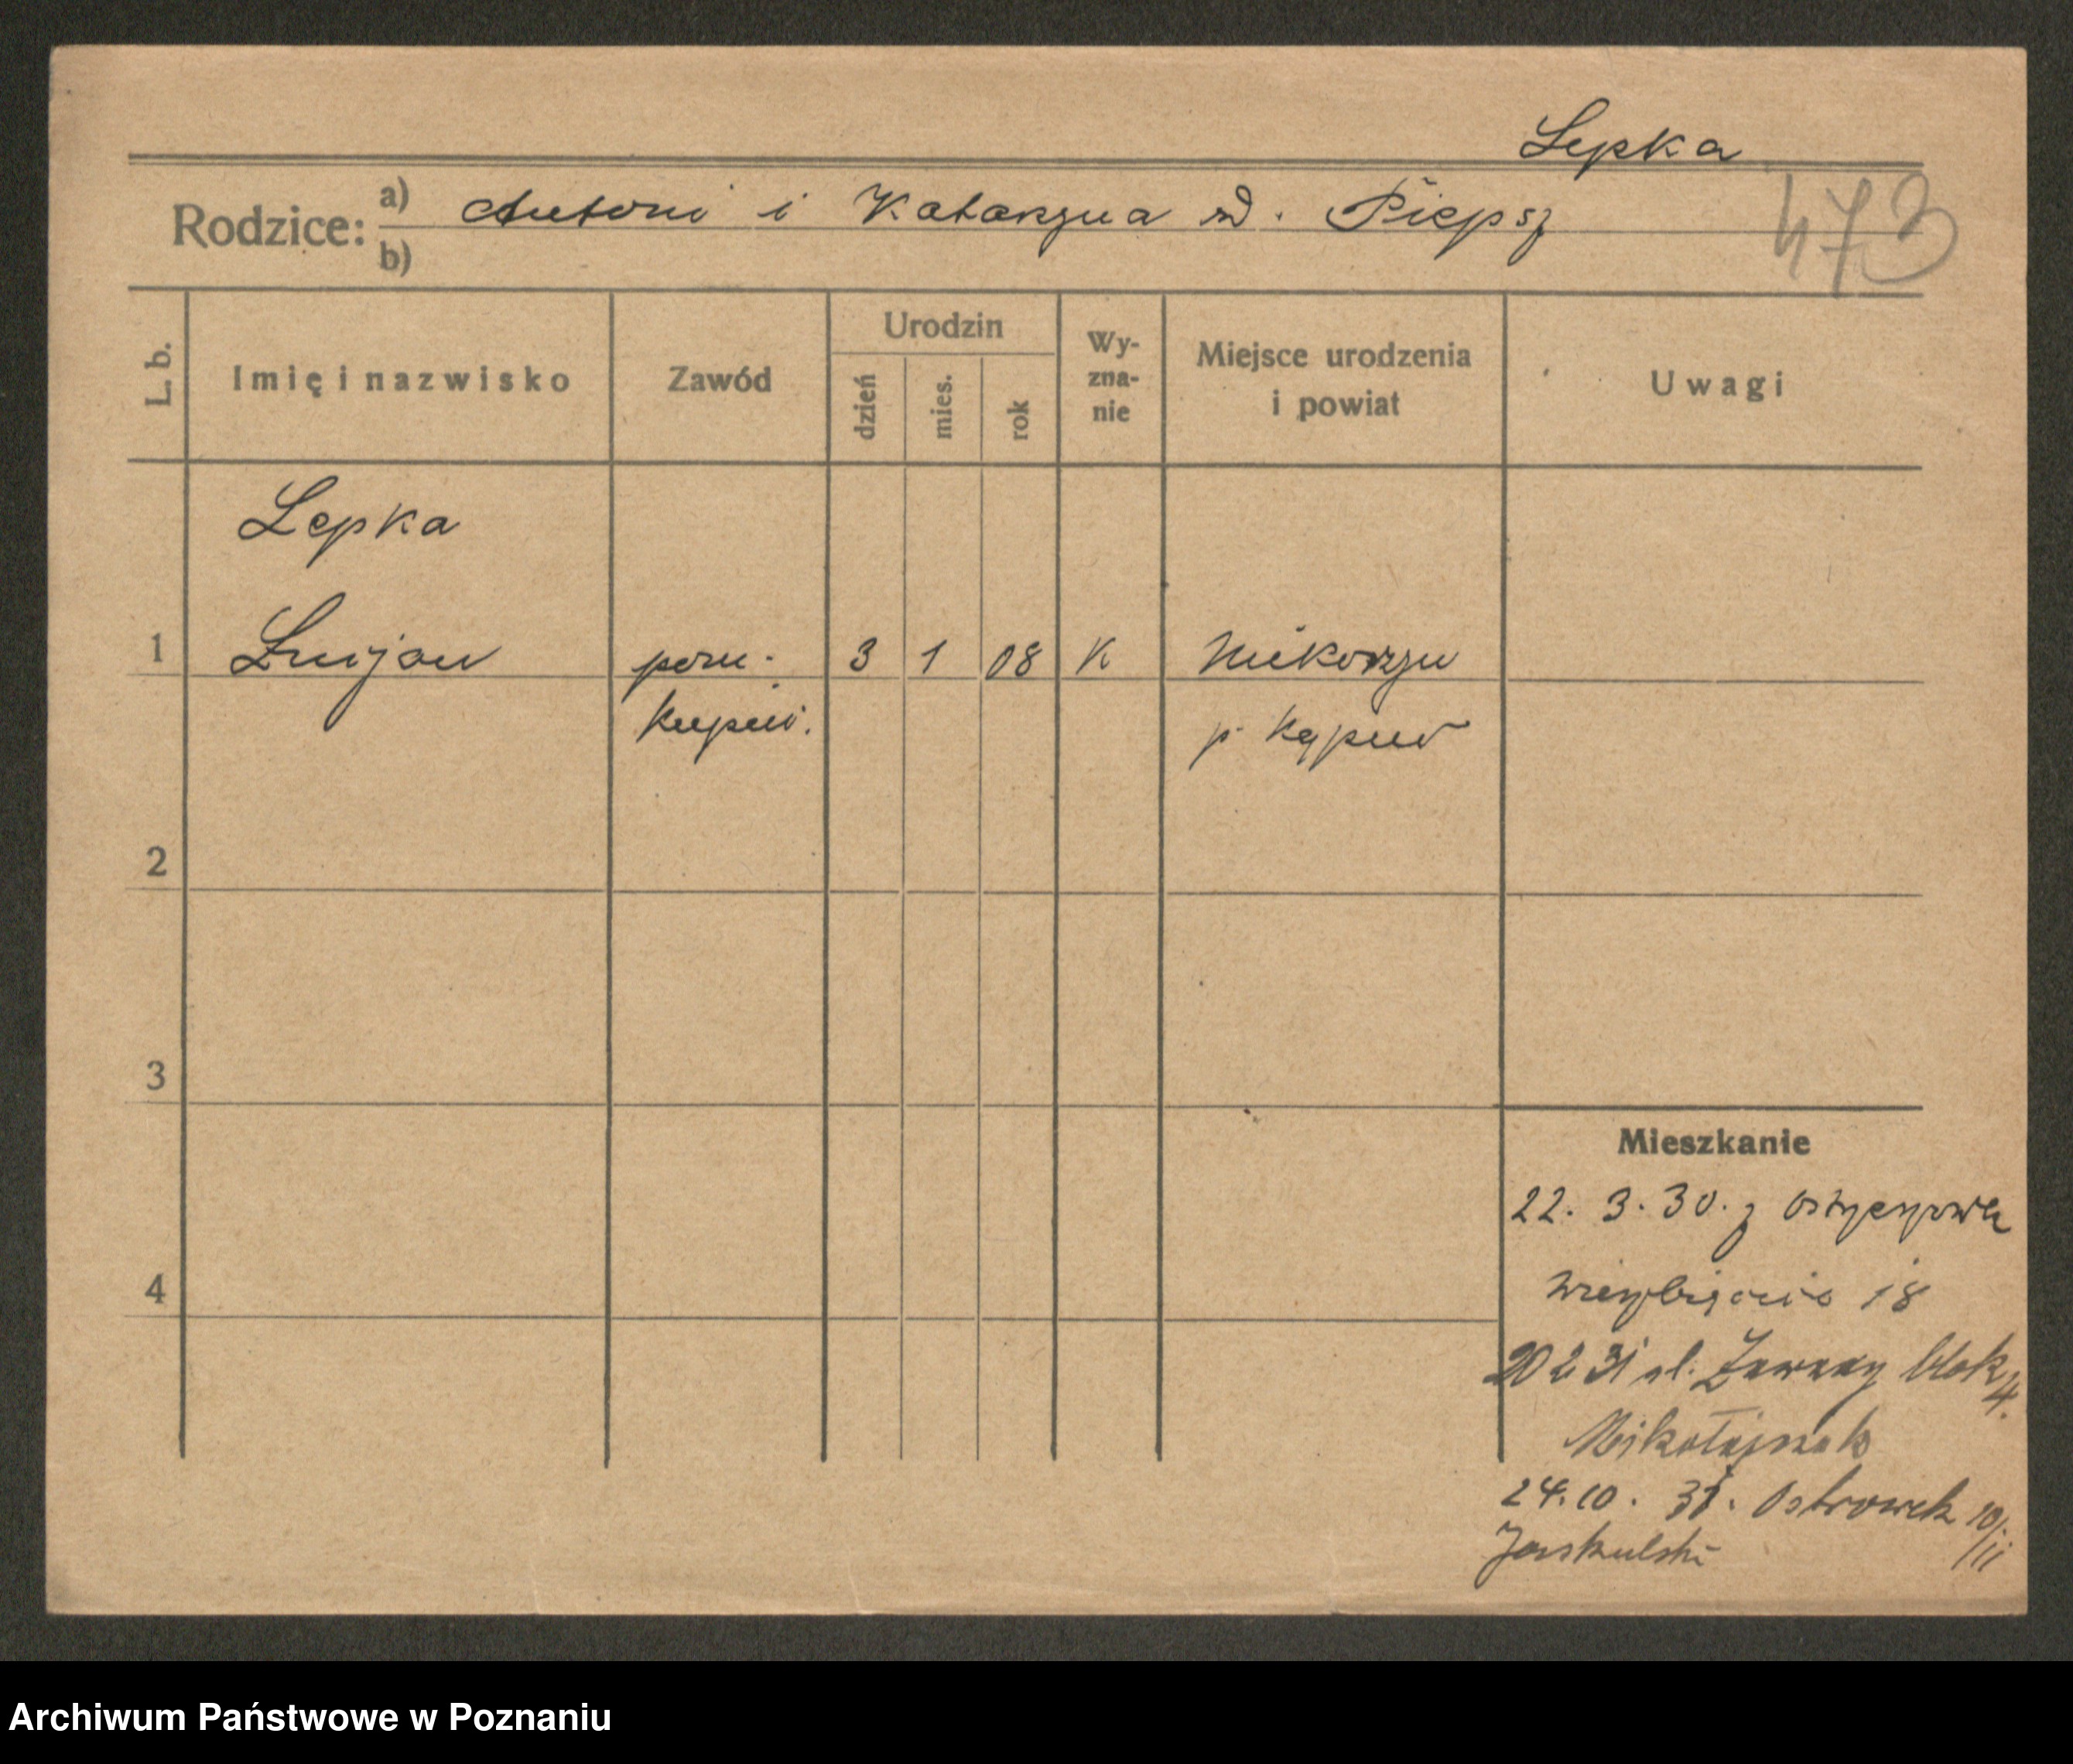 Lepka
Rodzice: a) Antoni i Katarzyna rd. Piepsz
b)
473
L. b.
Imię i nazwisko
Zawód
Urodzin
dzień
mies.
rok
Wy-
zna-
nie
Miejsce urodzenia
i powiat
Uwagi
Lepka
1 3 1 08 K
pom.
kupiec.
p. Kępno
2
3
4
Mieszkanie
22. 3. 30. z
Wierzbięcice 18
20 2 31 ul. blok 4.
Mikołajczak
24. 10. 31. Ostrowek 10/11
Jaskulski
Archiwum Państwowe w Poznaniu